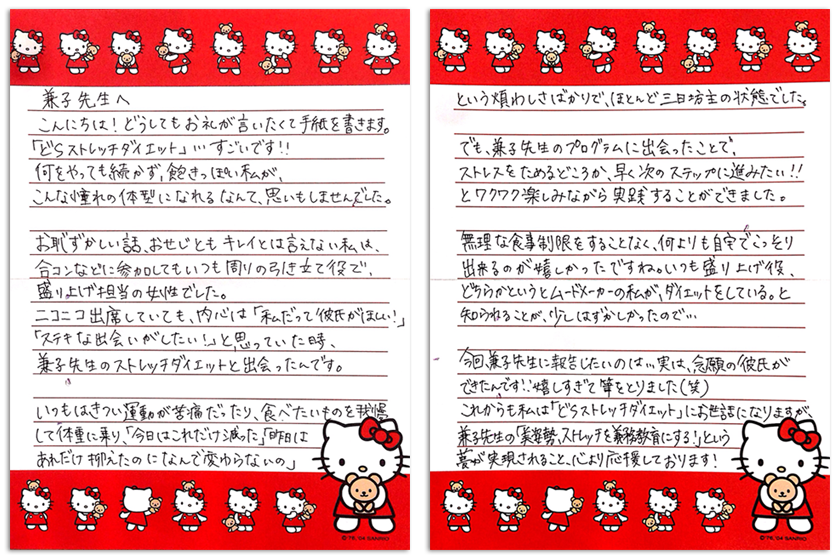 兼子先生へ
こんにちは！どうしてもお礼が言いたくて手紙を書きます。
「どらストレッチダイエット」…すごいです！！
何をやっても続かず、飽きっぽい私が、
こんな憧れの体型になれるなんて、思いもしませんでした。
お恥ずかしい話、おせじともキレイとは言えない私は、
合コンなどに参加してもいつも周りの引き立て役で、
盛り上げ担当の女性でした。
ニコニコ出席していても、内心は「私だって彼氏がほしい！」
「ステキな出会いがしたい！」と思っていた時、
兼子先生のストレッチダイエットと出会ったんです。
いつもはきつい運動が苦痛だったり、食べたいものを我慢
して体重に乗り、「今日はこれだけ減った」「昨日は
あれだけ抑えたのになんで変わらないの」
という煩わしさばかりで、ほとんど三日坊主の状態でした。
でも、兼子先生のプログラムに出会ったことで、
ストレスをためるどころか、早く次のステップに進みたい！！
とワクワク楽しみながら実践することができました。
無理な食事制限をすることなく、何よりも自宅でこっそり
出来るのが嬉しかったですね。いつも盛り上げ役、
どちらかというとムードメーカーの私が、ダイエットをしている。と
知られることが、少しはずかしかったので…
今回、兼子先生に報告したいのは…実は、念願の彼氏が
できたんです！！嬉しすぎて筆をとりました(笑)
これからも私は「どらストレッチダイエット」にお世話になりますが、
兼子先生の「美姿勢、ストレッチを義務教育にする！」という
夢が実現されること、心より応援しております！
©'76,'04 SANRIO
©'76,'04 SANRIO